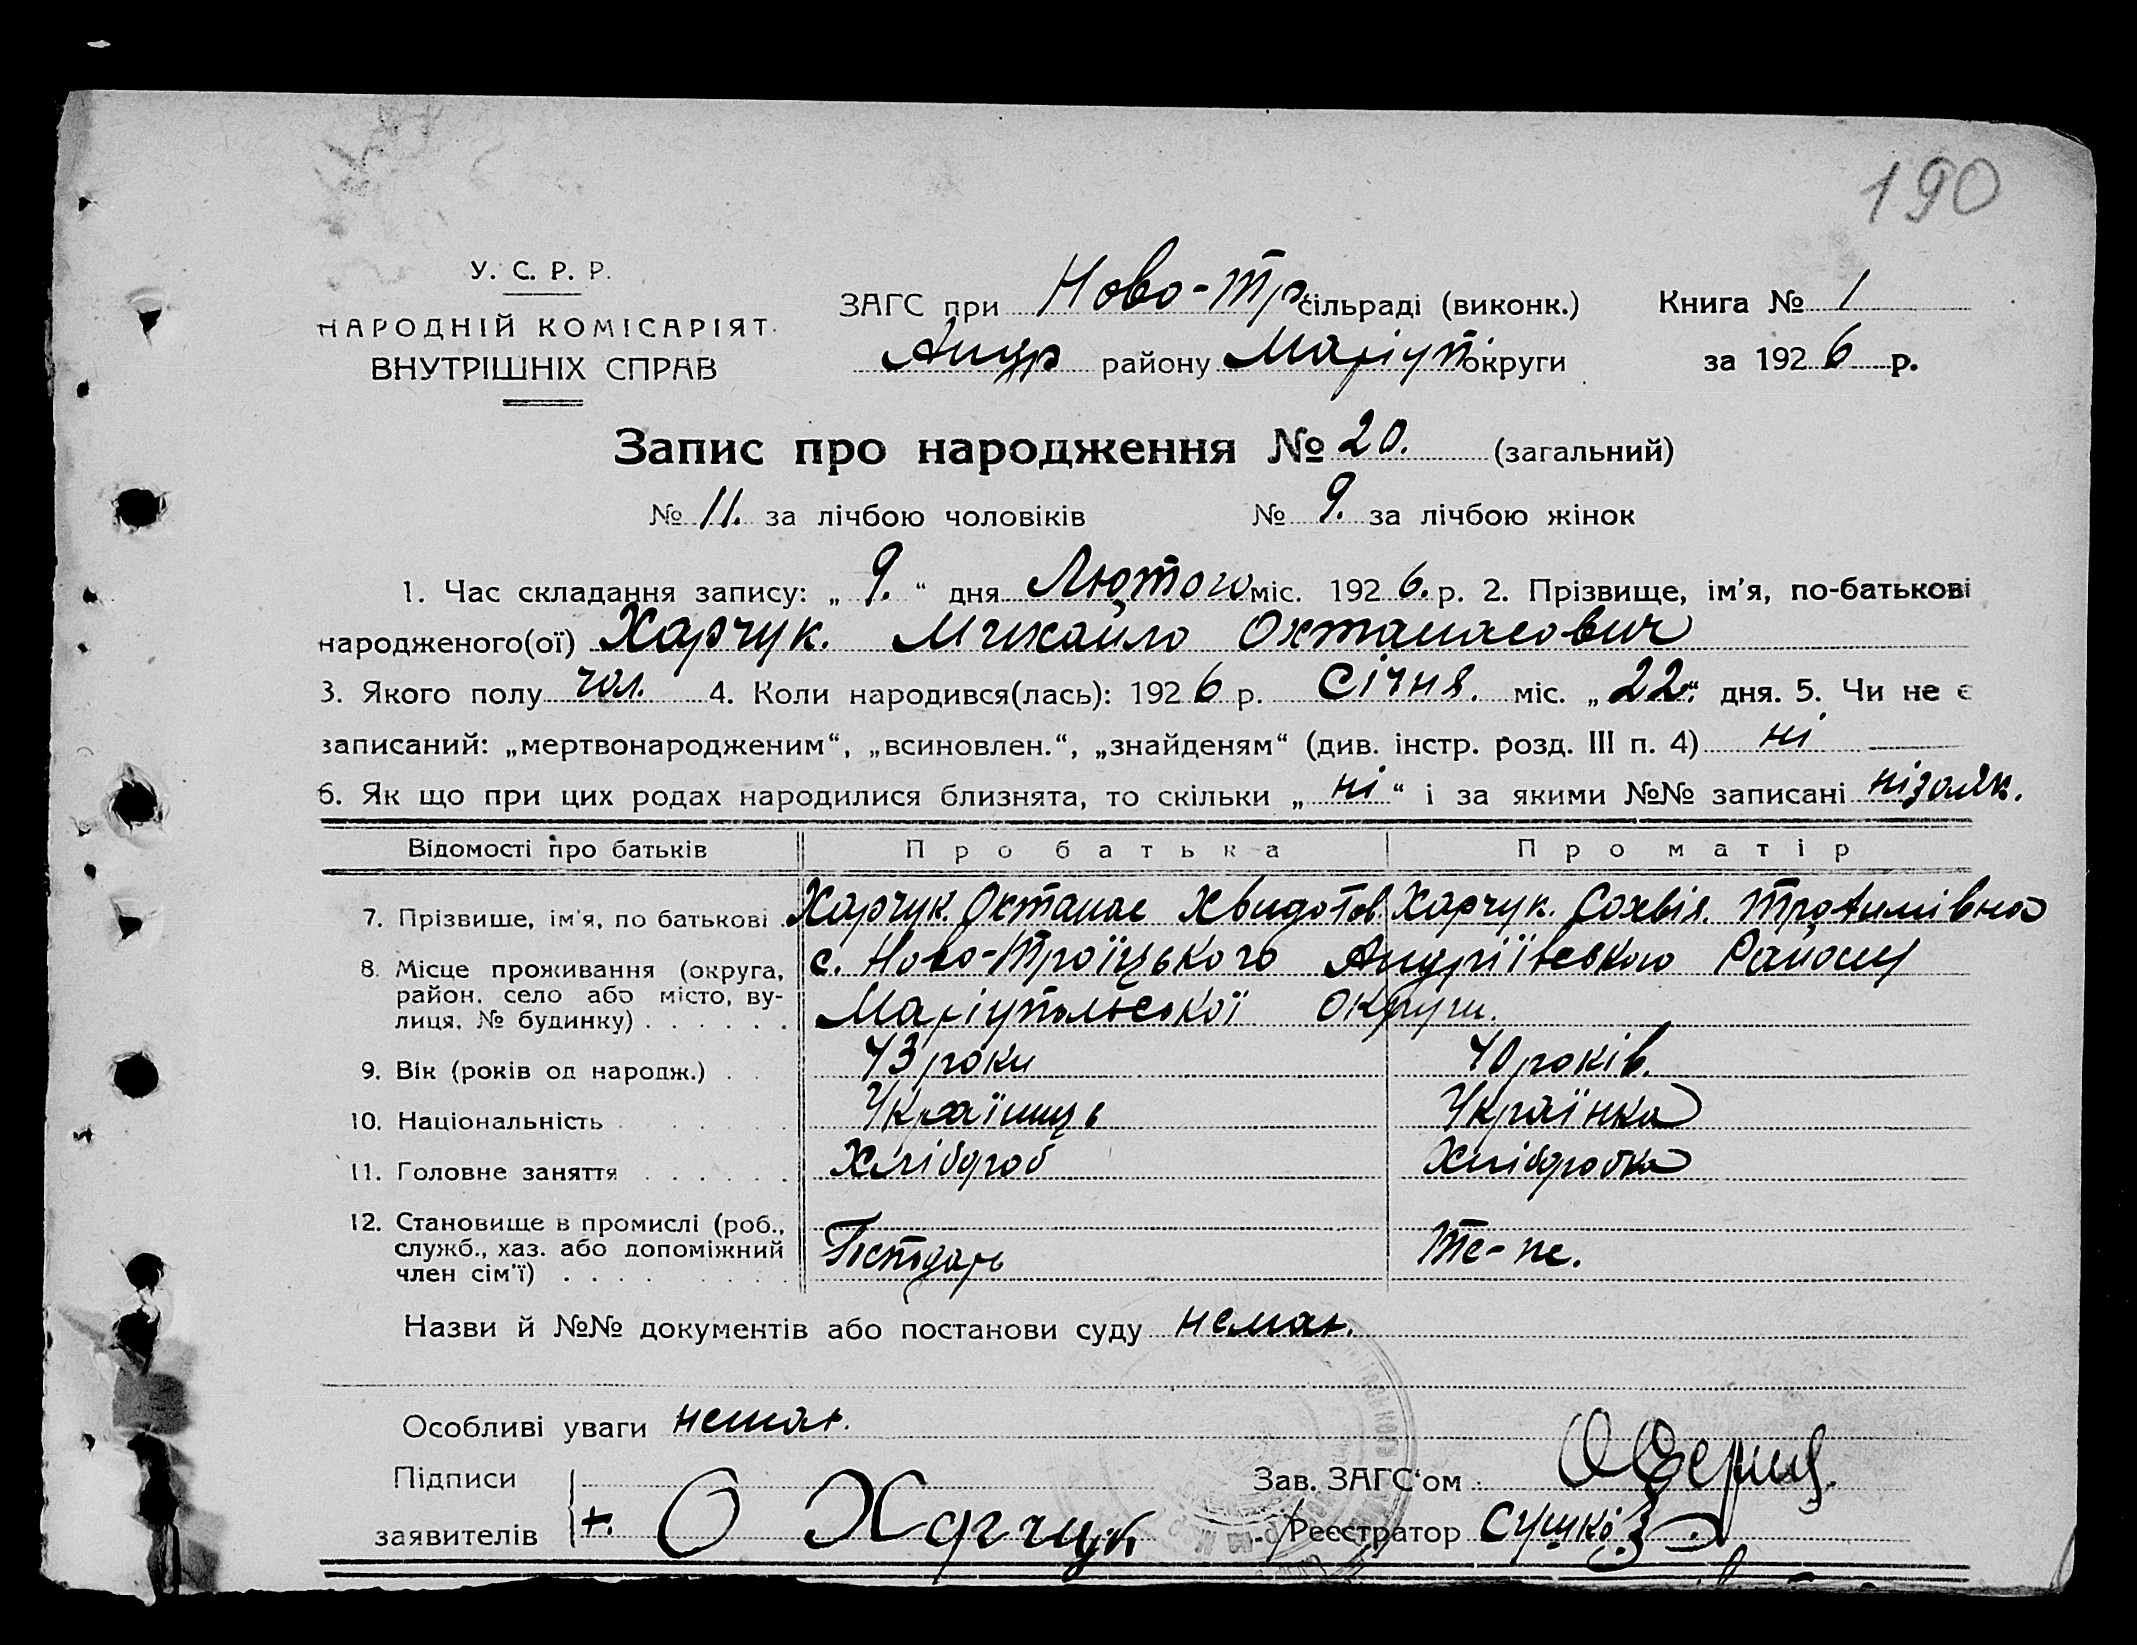 190
У. С. Р. Р.
НАРОДНІЙ КОМІСАРІЯТ
ВНУТРІШНІХ СПРАВ
ЗАГС при Ново-Тр. сільраді (виконк.) Книга № 1
Андр району Маріуп. округи за 1926 р.
Запис про народження № 20. (загальний)
№ 11. за лічбою чоловіків № 9. за лічбою жінок
1. Час складання запису: „ 9. “ дня Лютого міс. 1926. р. 2. Прізвище, ім'я, по-батькові
народженого(ої) Харчук. Михайло Охтанасович
3. Якого полу чол. 4. Коли народився(лась): 1926 р. Січня. міс. „22.“ дня. 5. Чи не є
записаний: „мертвонародженим“, „всиновлен.“, „знайденям“ (див. інстр. розд. III п. 4) ні
6. Як що при цих родах народилися близнята, то скільки „ ні “ і за якими №№ записані
Відомості про батьків Про батька Про матір
7. Прізвише, ім'я, по батькові Харчук. Охтанас Хведотов. Харчук. Сохвія. Трохимівна
8. Місце проживання (округа, район, село або місто, вулиця, № будинку) с. Ново-Троїцького Андріївського Району
Маріупольської Округи.
9. Вік (років од народж.) 43 роки 40 років.
10. Національність Українць Українка
11. Головне заняття Хлібороб Хліборобка
12. Становище в промислі (роб., служб., хаз. або допоміжний член сім'ї) Господарь Те-же.
Назви й №№ документів або постанови суду немає.
Особливі уваги немає.
Підписи
заявителів +. О Харчук
Зав. ЗАГС'ом
Реєстратор Сушко